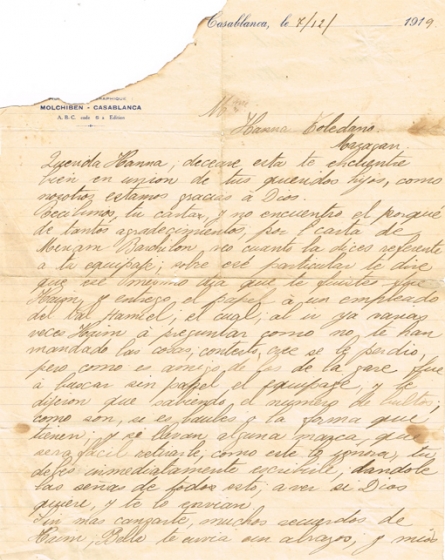 Casablanca, le 7/12/ 1919
GRAPHIQUE
MOLCHIBEN - CASABLANCA
A.B.C. code 6 a Edition
Hanna Toledano
Mazagan
Querida Hanna, deceare esta te encuentre
bien en union de tus queridos hijos, como
nosotros estamos gracias á Dios.
Recibimos, tu carta, y no encuentro el porqué
de tantos agradecimientos, por carta de
Meriam cuanto la dices referente
a tu equipaje; sobre ese particular te dire
que el mismo dia que te fuistes fue
Haim, y entrego el papel á un empleado
del tal el cual, al ir ya varias
veces Haim á preguntar como no te han
mandado las cosas, contesto, que se le perdio,
pero como es amigo de de la gare, fue
á buscar sin papel el equipage, y le
dijeron que sabiendo el número de bultos,
como son, si es baules o la forma que
tienen, y si llevan alguna marca, que
sera facil como este lo ignora, tu
deves inmediatamente escribirle, dandole
las señas de todos a ver si Dios
quiere, y te lo envian.
Sin mas cansarte, muchos recuerdos de
Haim, te envia un abrazo, y mis